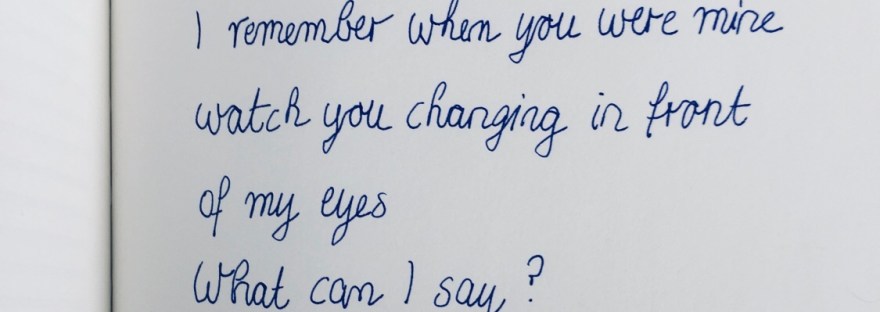 I remember when you were mine
watch you changing in front
of my eyes
What can I say?